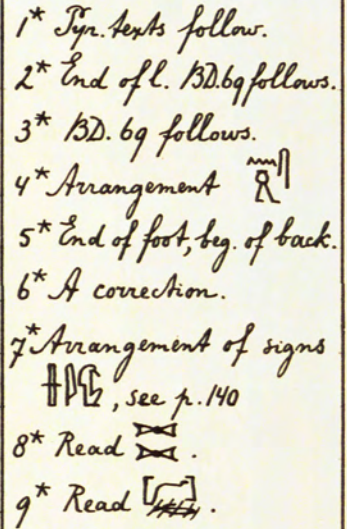 1* Pyr. texts follow.
2* End of l. BD. 69 follows.
3* BD. 69 follows.
4* Arrangement
5* End of foot, beg. of back.
6* A correction.
7* Arrangement of signs
, see p. 140
8* Read .
9* Read .